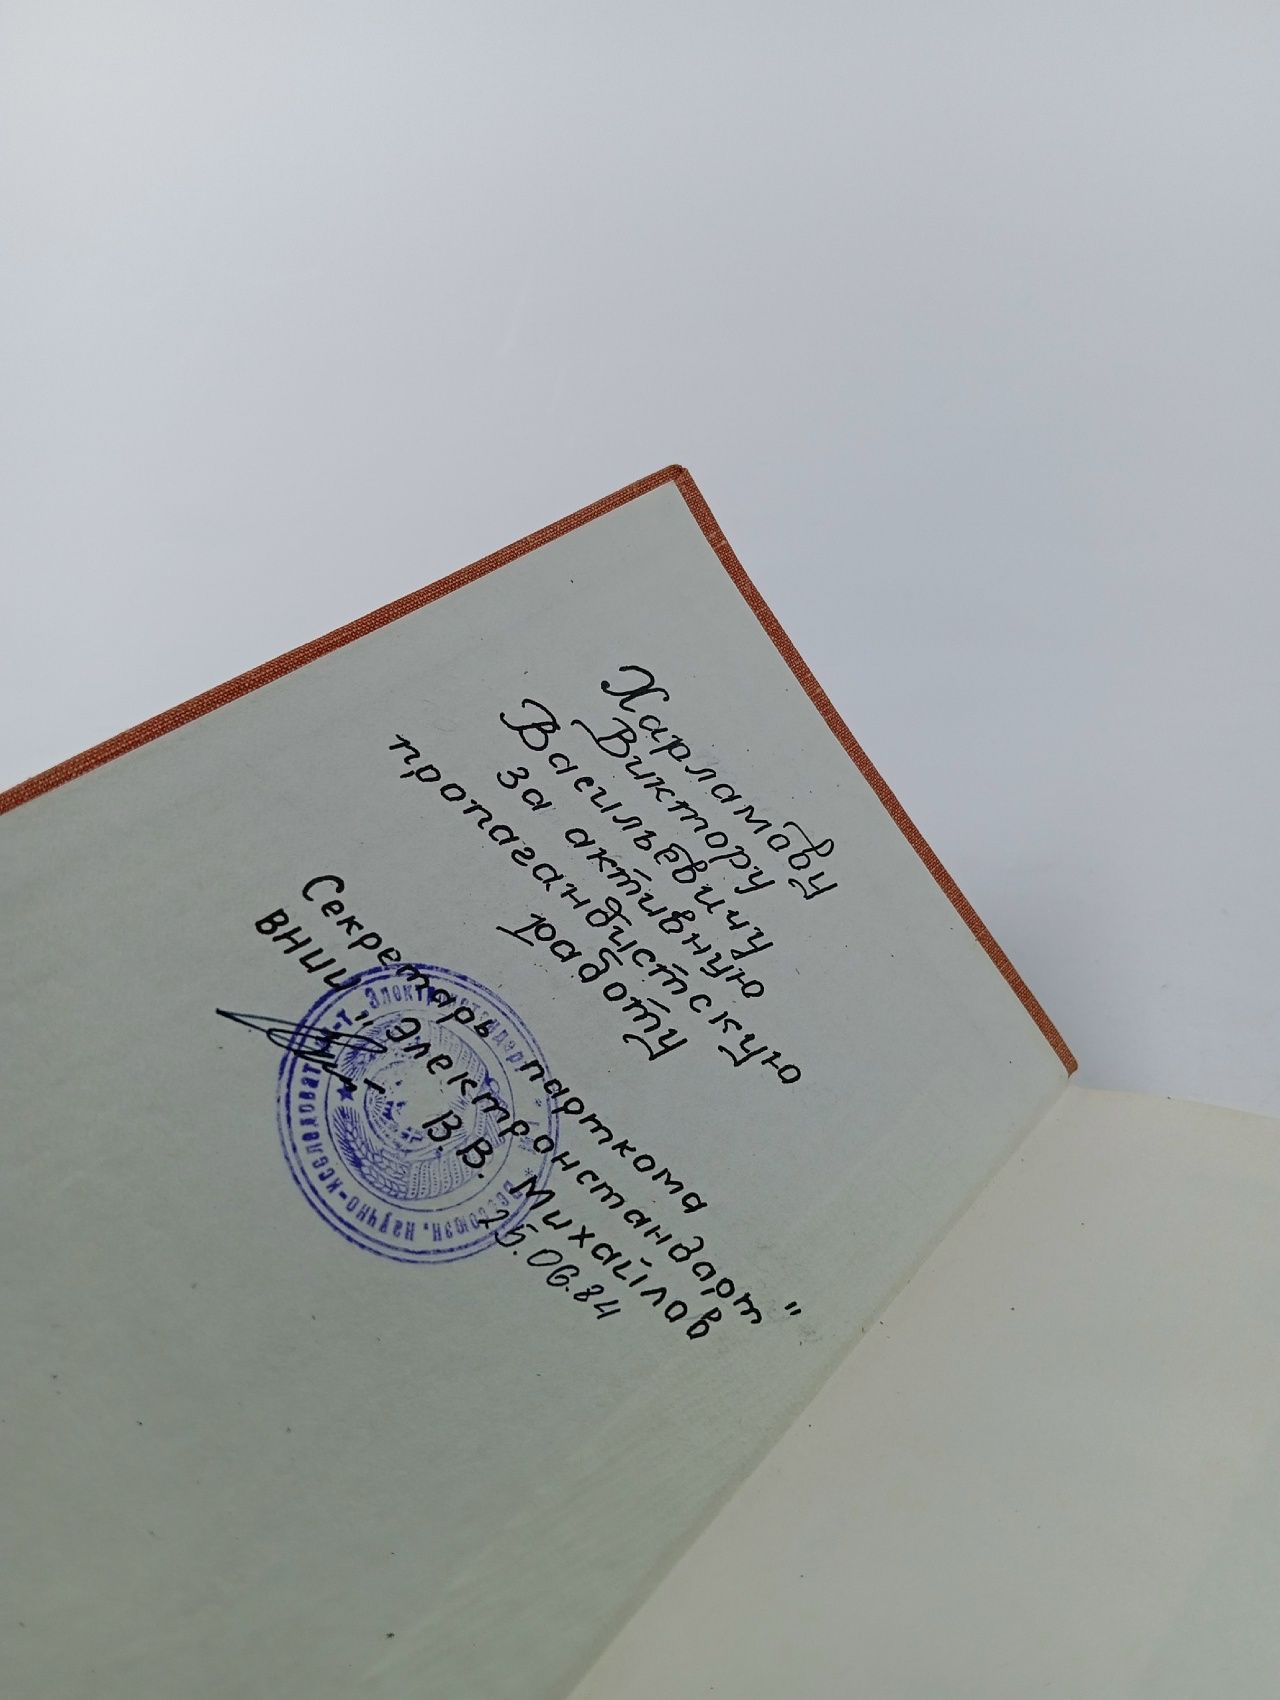 Харламову
Виктору
Васильевичу
за активную
пропагандистскую
работу
Секретарь парткома
ВНИИ "Электронстандарт"
В.В. Михайлов
25.06.84
Всесоюзн. научно-исследоват. ин-т. Электронстандарт